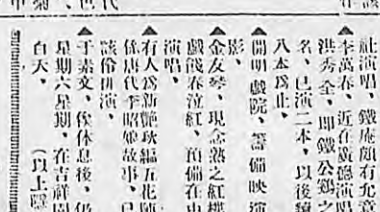 社演唱、鐵庵頗有允意
▲李萬春、近在廣德演唱
洪秀全、即鐵公鷄之
名、已演二本、以後續
八本爲止、
▲開明戲院、籌備映演
影、
▲金友琴、現念熟之紅樓
戲餞春泣紅、預備在出
演唱、
▲有人爲新艷秋編五花
係唐代李昭娘故事、已
該伶排演、
▲于素文、俟休息後、仍
星期六星期、在吉祥園
白天、（以上